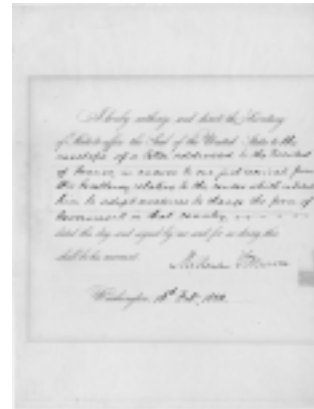 I hereby authorize and direct the Secretary
of State to affix the Seal of the United States to the
envelope of a letter addressed to the President
of France, in answer to one just received from
His Excellency relating to the causes which induced
him to adopt measures to change the form of
Government in that country,
dated this day and signed by me and for so doing this
shall be his warrant.
Millard Fillmore
Washington, 16th Feb. 1852.